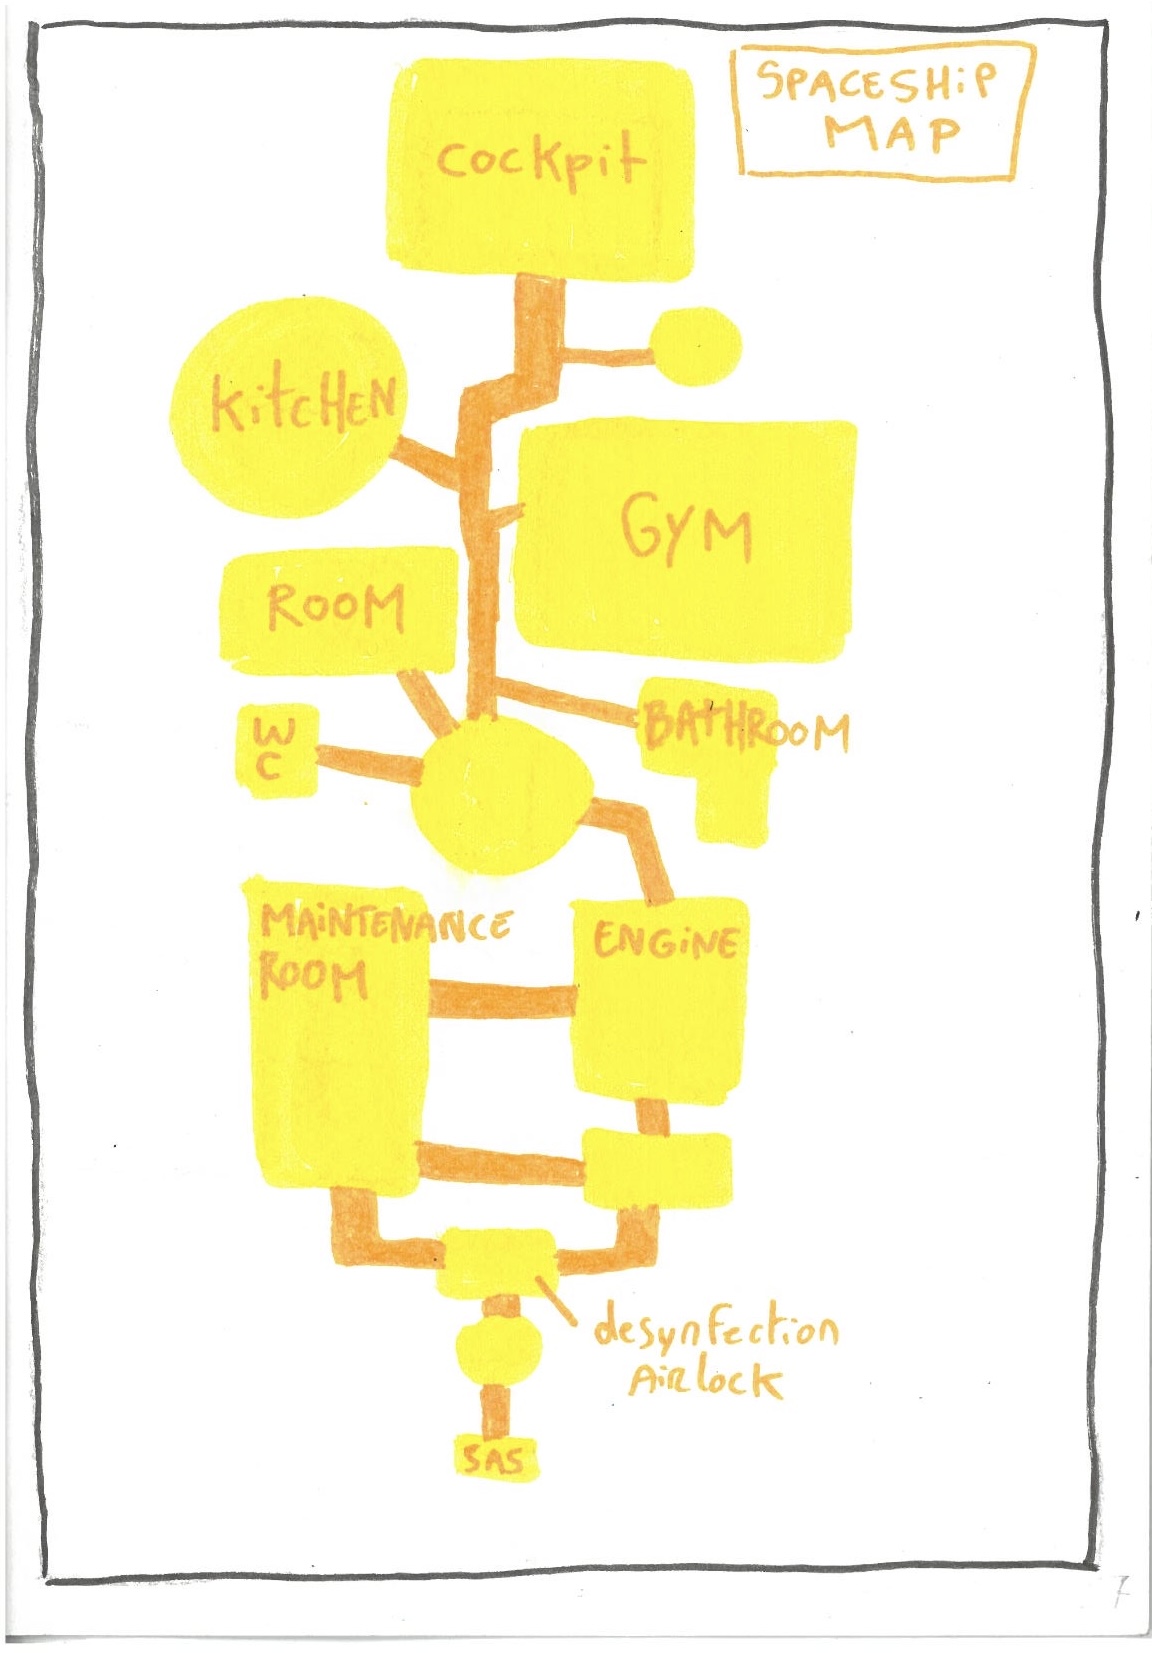 SPACESHiP
MAP
cockpit
KitcHEN
GYM
ROOM
W
C
BATHROOM
MAiNTENANCE
ROOM
ENGiNE
desynfection
AiRlocK
SAS
7